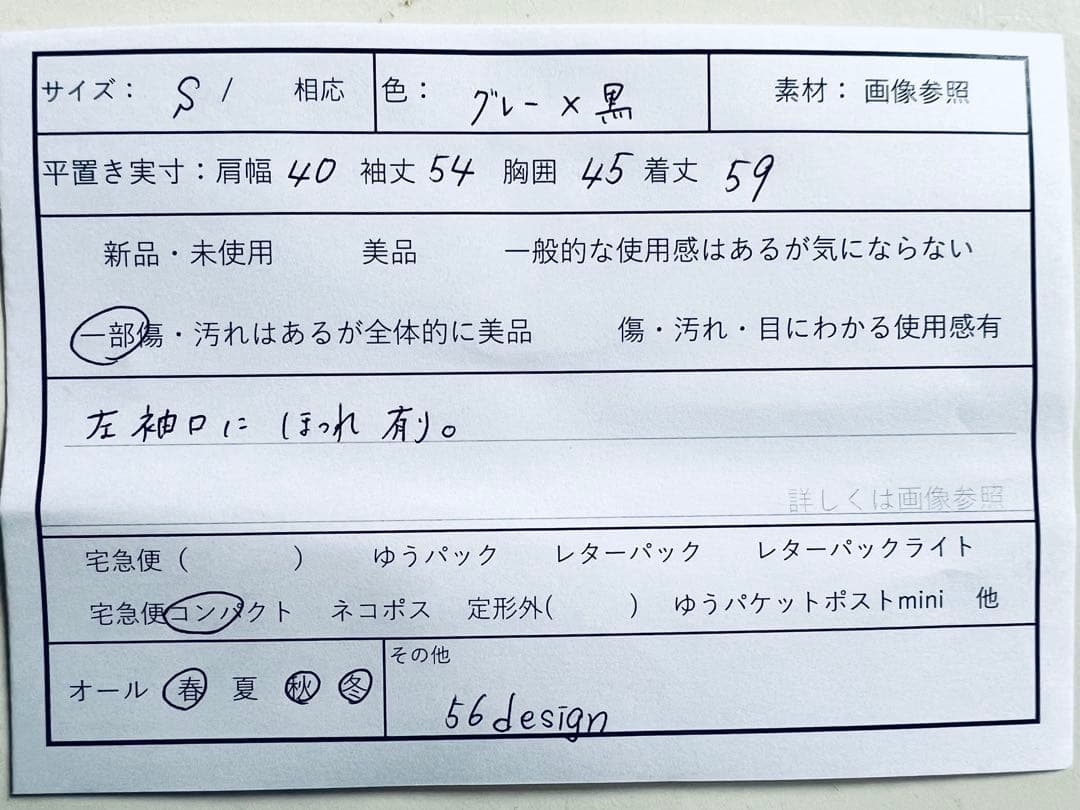 サイズ： S / 相応 色： グレー×黒 素材： 画像参照
平置き実寸：肩幅 40 袖丈 54 胸囲 45 着丈 59
新品・未使用 美品 一般的な使用感はあるが気にならない
一部傷・汚れはあるが全体的に美品 傷・汚れ・目にわかる使用感有
左袖口に ほつれ 有り。
詳しくは画像参照
宅急便（ ） ゆうパック レターパック レターパックライト
宅急便コンパクト ネコポス 定形外( ) ゆうパケットポストmini 他
オール 春 夏 秋 冬
その他
56design